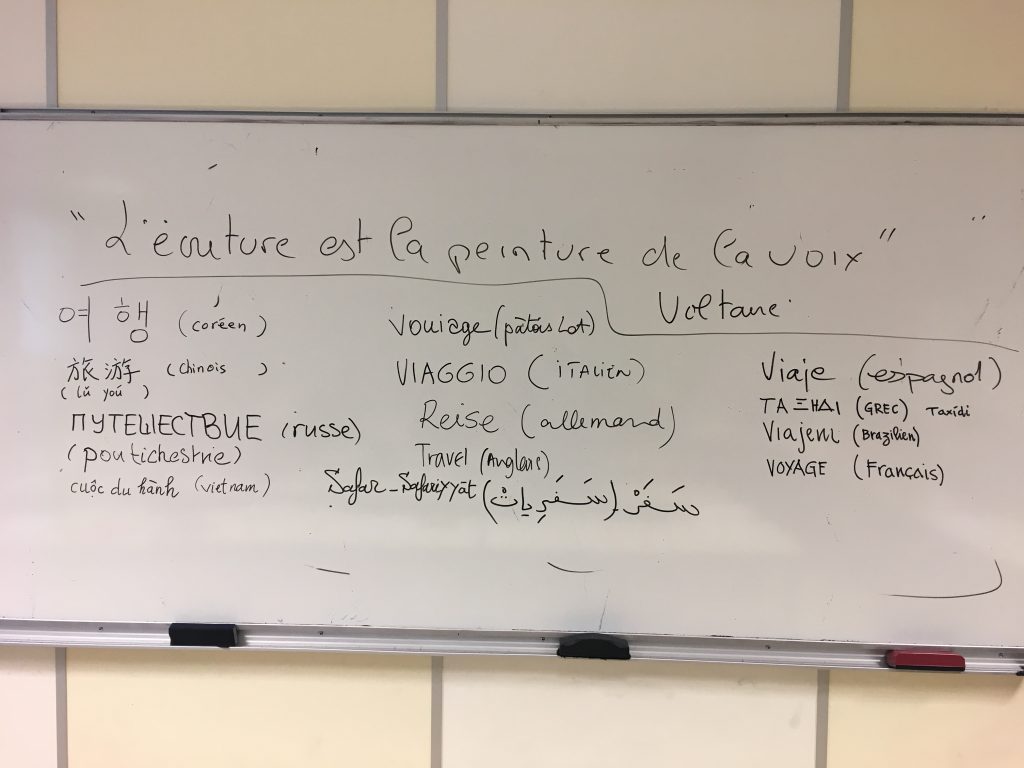 " L'écriture est la peinture de la voix "
Voltaire
여행 (coréen)
旅游 (chinois)
(lǚ yóu)
ПУТЕШЕСТВИЕ (russe)
(poutichestrie)
cuôc du hành (vietnam)
Vouiage (patois Lot)
VIAGGIO (ITALIEN)
Reise (allemand)
Travel (Anglais)
Safar - Safariyyāt (سَفَرِيَاتْ) - سَفَرْ
Viaje (espagnol)
ΤΑΞΗΔΙ (GREC) Taxídi
Viajem (Brazilien)
VOYAGE (Français)